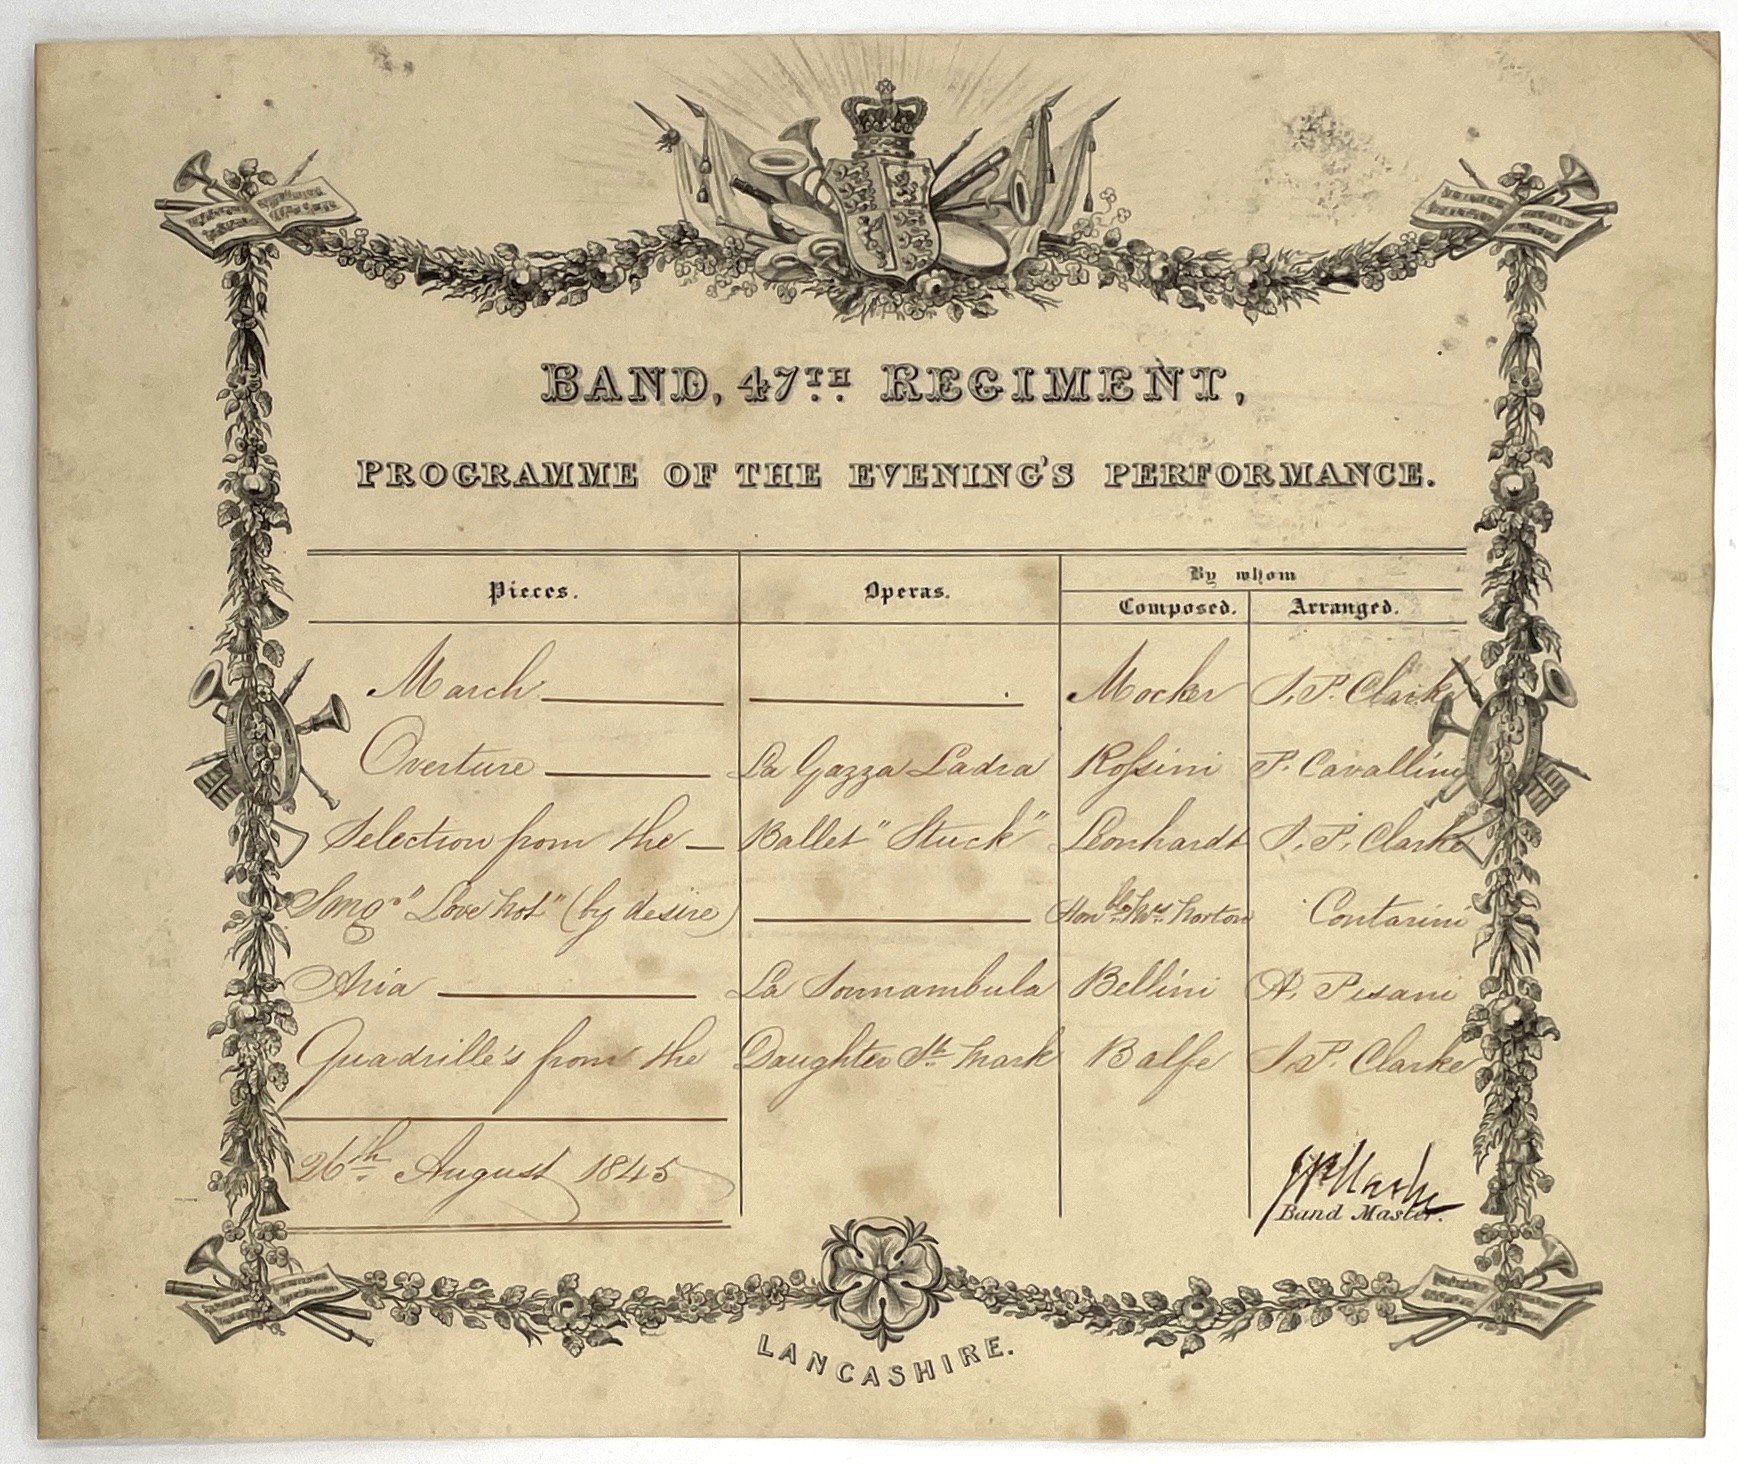 BAND, 47TH REGIMENT,
PROGRAMME OF THE EVENING'S PERFORMANCE.
Pieces. Operas. By whom
Composed. Arranged.
March Mocker J. P. Clarke
Overture La Gazza Ladra Rossini P. Cavallini
Selection from the Ballet "Stuck" Leonhardt J. P. Clarke
Song "Love not" (by desire) Honble Mrs. Norton Contarini
Aria La Sonnambula Bellini A. Pisani
Quadrille's from the Daughter St. Mark Balfe J. P. Clarke
26th August 1845
JPClarke
Band Master.
LANCASHIRE.